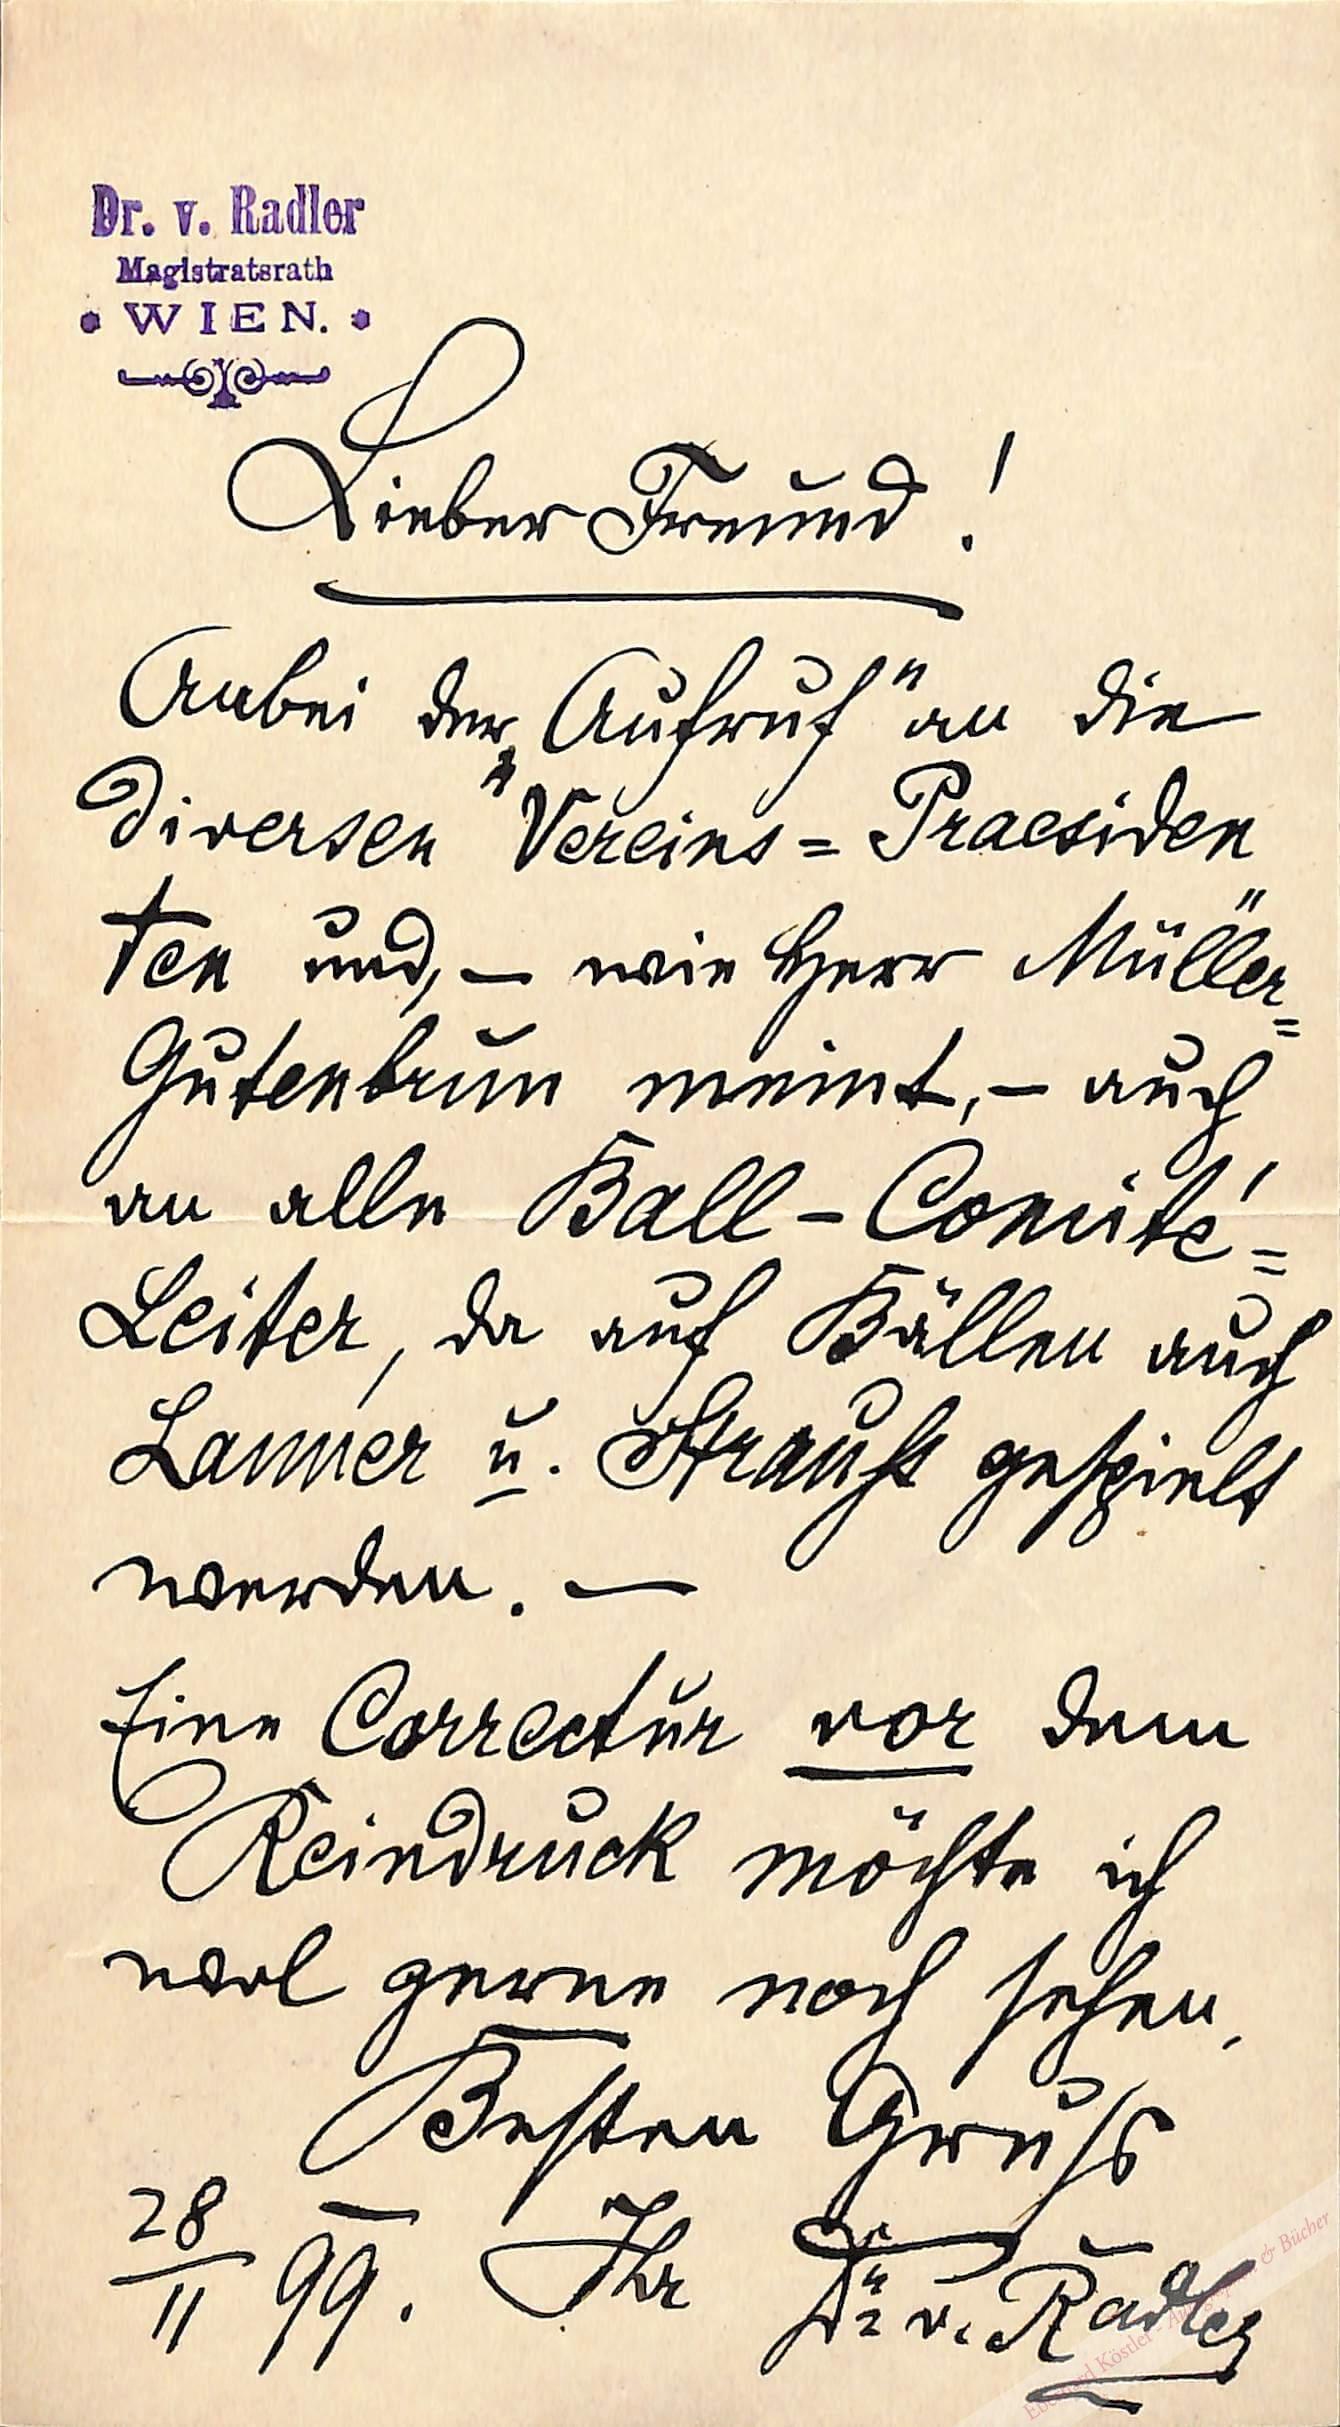 Dr. v. Radler
Magistratsrath
• WIEN. •
Lieber Freund!
Anbei der „Aufruf" an die
diversen „Vereins=Praesiden
ten und, – wie Herr Müller=
Gutenbrun meint, – auch
an alle Ball-Comité=
Leiter, da auf Bällen auch
Lanner u. Strauß gespielt
werden. –
Eine Correctur vor dem
Reindruck möchte ich
wol gerne noch sehen.
Besten Gruß
28/11 99. Ihr Dr. v. Radler
Eberhard Köstler - Autographen & Bücher